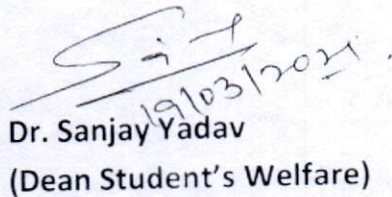 19/03/2021
Dr. Sanjay Yadav
(Dean Student's Welfare)